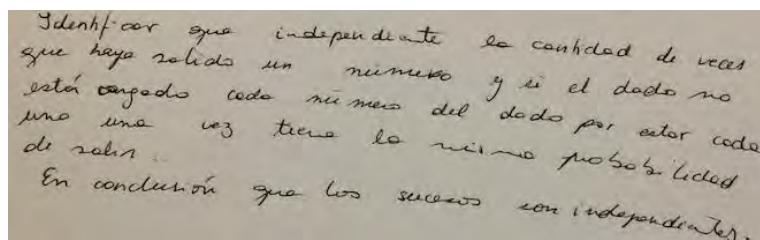 Identificar que independiente la cantidad de veces
que haya salido un número y si el dado no
está cargado cada número del dado por estar cada
uno una vez tiene la misma probabilidad
de salir.
En conclusión que los sucesos son independientes.